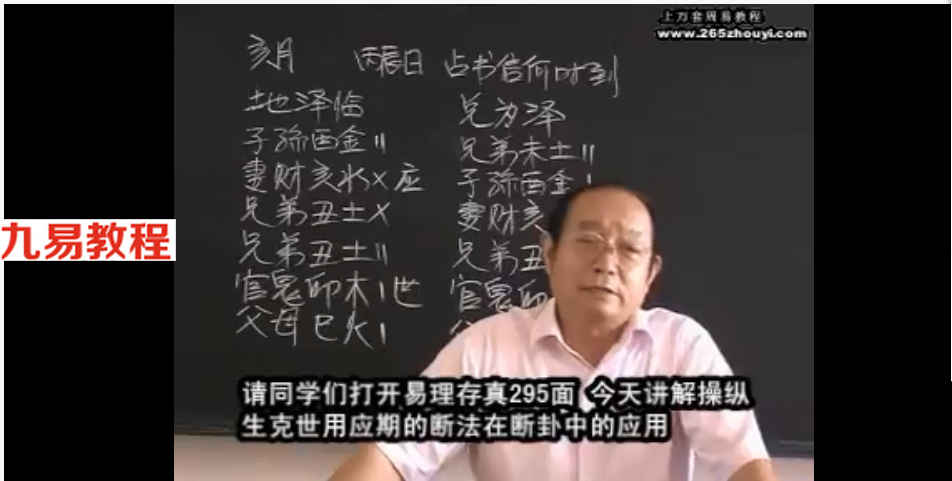 上万套周易教程
www.265zhouyi.com
亥月 丙辰日 占书信何时到
土地泽临 兑为泽
子孙酉金〃 兄弟未土〃
妻财亥水X应 子孙酉金
兄弟丑土X 妻财亥
兄弟丑土〃 兄弟丑
官鬼卯木 世 官鬼卯
父母巳火
九易教程
请同学们打开易理存真295面 今天讲解操纵
生克世用应期的断法在断卦中的应用